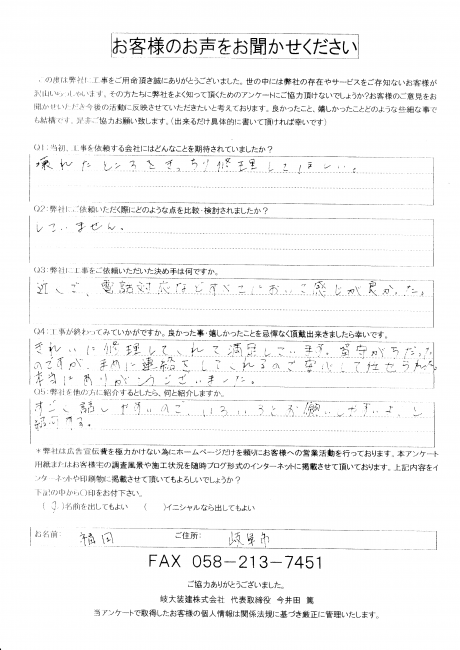 お客様のお声をお聞かせください
この度は弊社に工事をご用命頂き誠にありがとうございました。世の中には弊社の存在やサービスをご存知ないお客様が
沢山いらっしゃいます。その方たちに弊社をよく知って頂くためのアンケートにご協力頂けないでしょうか?お客様のご意見をお
聞かせいただき今後の活動に反映させていただきたいと考えております。良かったこと、嬉しかったことどのような些細な事で
も結構です。是非ご協力お願い致します。(出来るだけ具体的に書いて頂ければ幸いです)
Q1:当初、工事を依頼する会社にはどんなことを期待されていましたか?
壊れたところをきっちり修理してほしい。
Q2:弊社にご依頼いただく際にどのような点を比較・検討されましたか?
していません。
Q3:弊社に工事をご依頼いただいた決め手は何ですか。
近しご、電話対応などすべてにおいて感じが良かった。
Q4:工事が終わってみていかがですか。良かった事・嬉しかったことを忌憚なく頂戴出来きましたら幸いです。
きれいに修理してくれて満足しています。留守がちだった
のですが、まめに連絡をしてくれるので安心して任せられた。
本当にありがとうございました。
Q5:弊社を他の方に紹介するとしたら、何と紹介しますか。
すごく話しやすいので、いろいろとお願いしやすいよ、と
紹介する。
*弊社は広告宣伝費を極力かけない為にホームページだけを頼りにお客様への営業活動を行っております。本アンケート
用紙またはお客様宅の調査風景や施工状況を随時ブログ形式のインターネットに掲載させて頂いております。上記内容をイ
ンターネットや印刷物に掲載させて頂いてもよろしいでしょうか?
下記の中から○印をお付下さい。
( )名前を出してもよい ( )イニシャルなら出してもよい
お名前: ご住所: 岐阜市
FAX 058-213-7451
ご協力ありがとうございました。
岐大装建株式会社 代表取締役 今井田 篤
当アンケートで取得したお客様の個人情報は関係法規に基づき厳正に管理いたします。